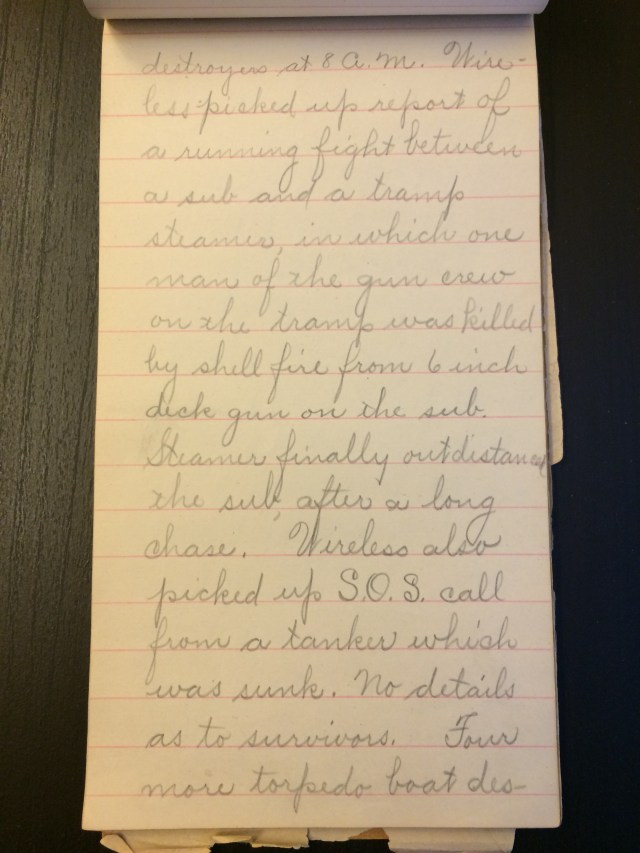 destroyers at 8 A.M. Wire-
less picked up report of
a running fight between
a sub and a tramp
steamer, in which one
man of the gun crew
on the tramp was killed
by shell fire from 6 inch
deck gun on the sub.
Steamer finally outdistanced
the sub, after a long
chase. Wireless also
picked up S.O.S. call
from a tanker which
was sunk. No details
as to survivors. Four
more torpedo boat des-